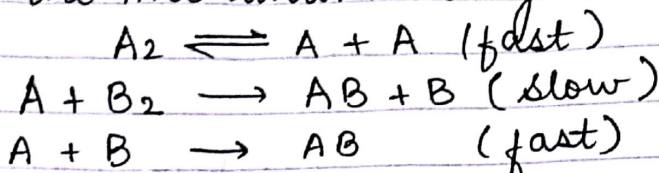 A2 ⇌ A + A (fast)
A + B2 → AB + B (slow)
A + B → AB (fast)